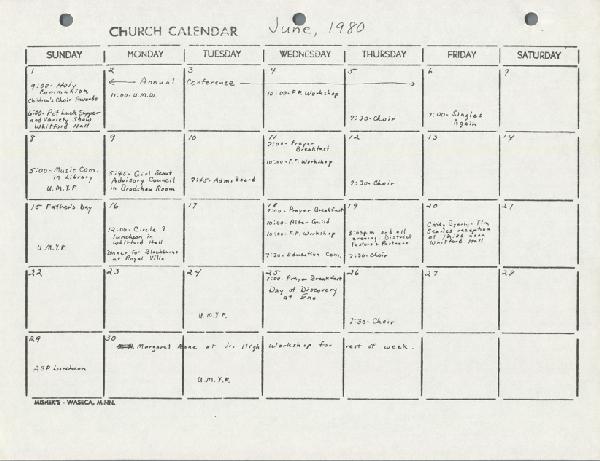 CHURCH CALENDAR June, 1980
SUNDAY MONDAY TUESDAY WEDNESDAY THURSDAY FRIDAY SATURDAY
1
9:00 - Holy
Communion
Children's Choir
Pot Luck Supper
and Variety Show
Whitford Hall
2
Annual Conference
11:00 - U.M.W.
3
4
10:00 - F.F. Workshop
5
7:30 - Choir
6
7:00 - Singles
Again
7
8
5:00 - Music Com.
in Library
U.M.Y.F
9
Girl Scout
Advisory Council
Room
10
7:45 - Adm. Board
11
7:00 - Prayer
Breakfast
10:00 - F.F. Workshop
12
7:30 - Choir
13
14
15 Father's Day
U.M.Y.F
16
12:00 - Circle
luncheon in
Whitford Hall
Dinner for
at Royal Villa
17
18
7:00 - Prayer Breakfast
10:00 - Altar Guild
10:00 - F.F. Workshop
7:30 - Education Com.
19
evening District
7:30 - Choir
20
reception
Whitford Hall
21
22
23
24
U.M.Y.F.
25
7:00 - Prayer Breakfast
Day of Discovery
at
26
7:30 - Choir
27
28
29
ASP Luncheon
30
Margaret at Jr. High Workshop for rest of week.
U.M.Y.F.
- WASECA, MINN.